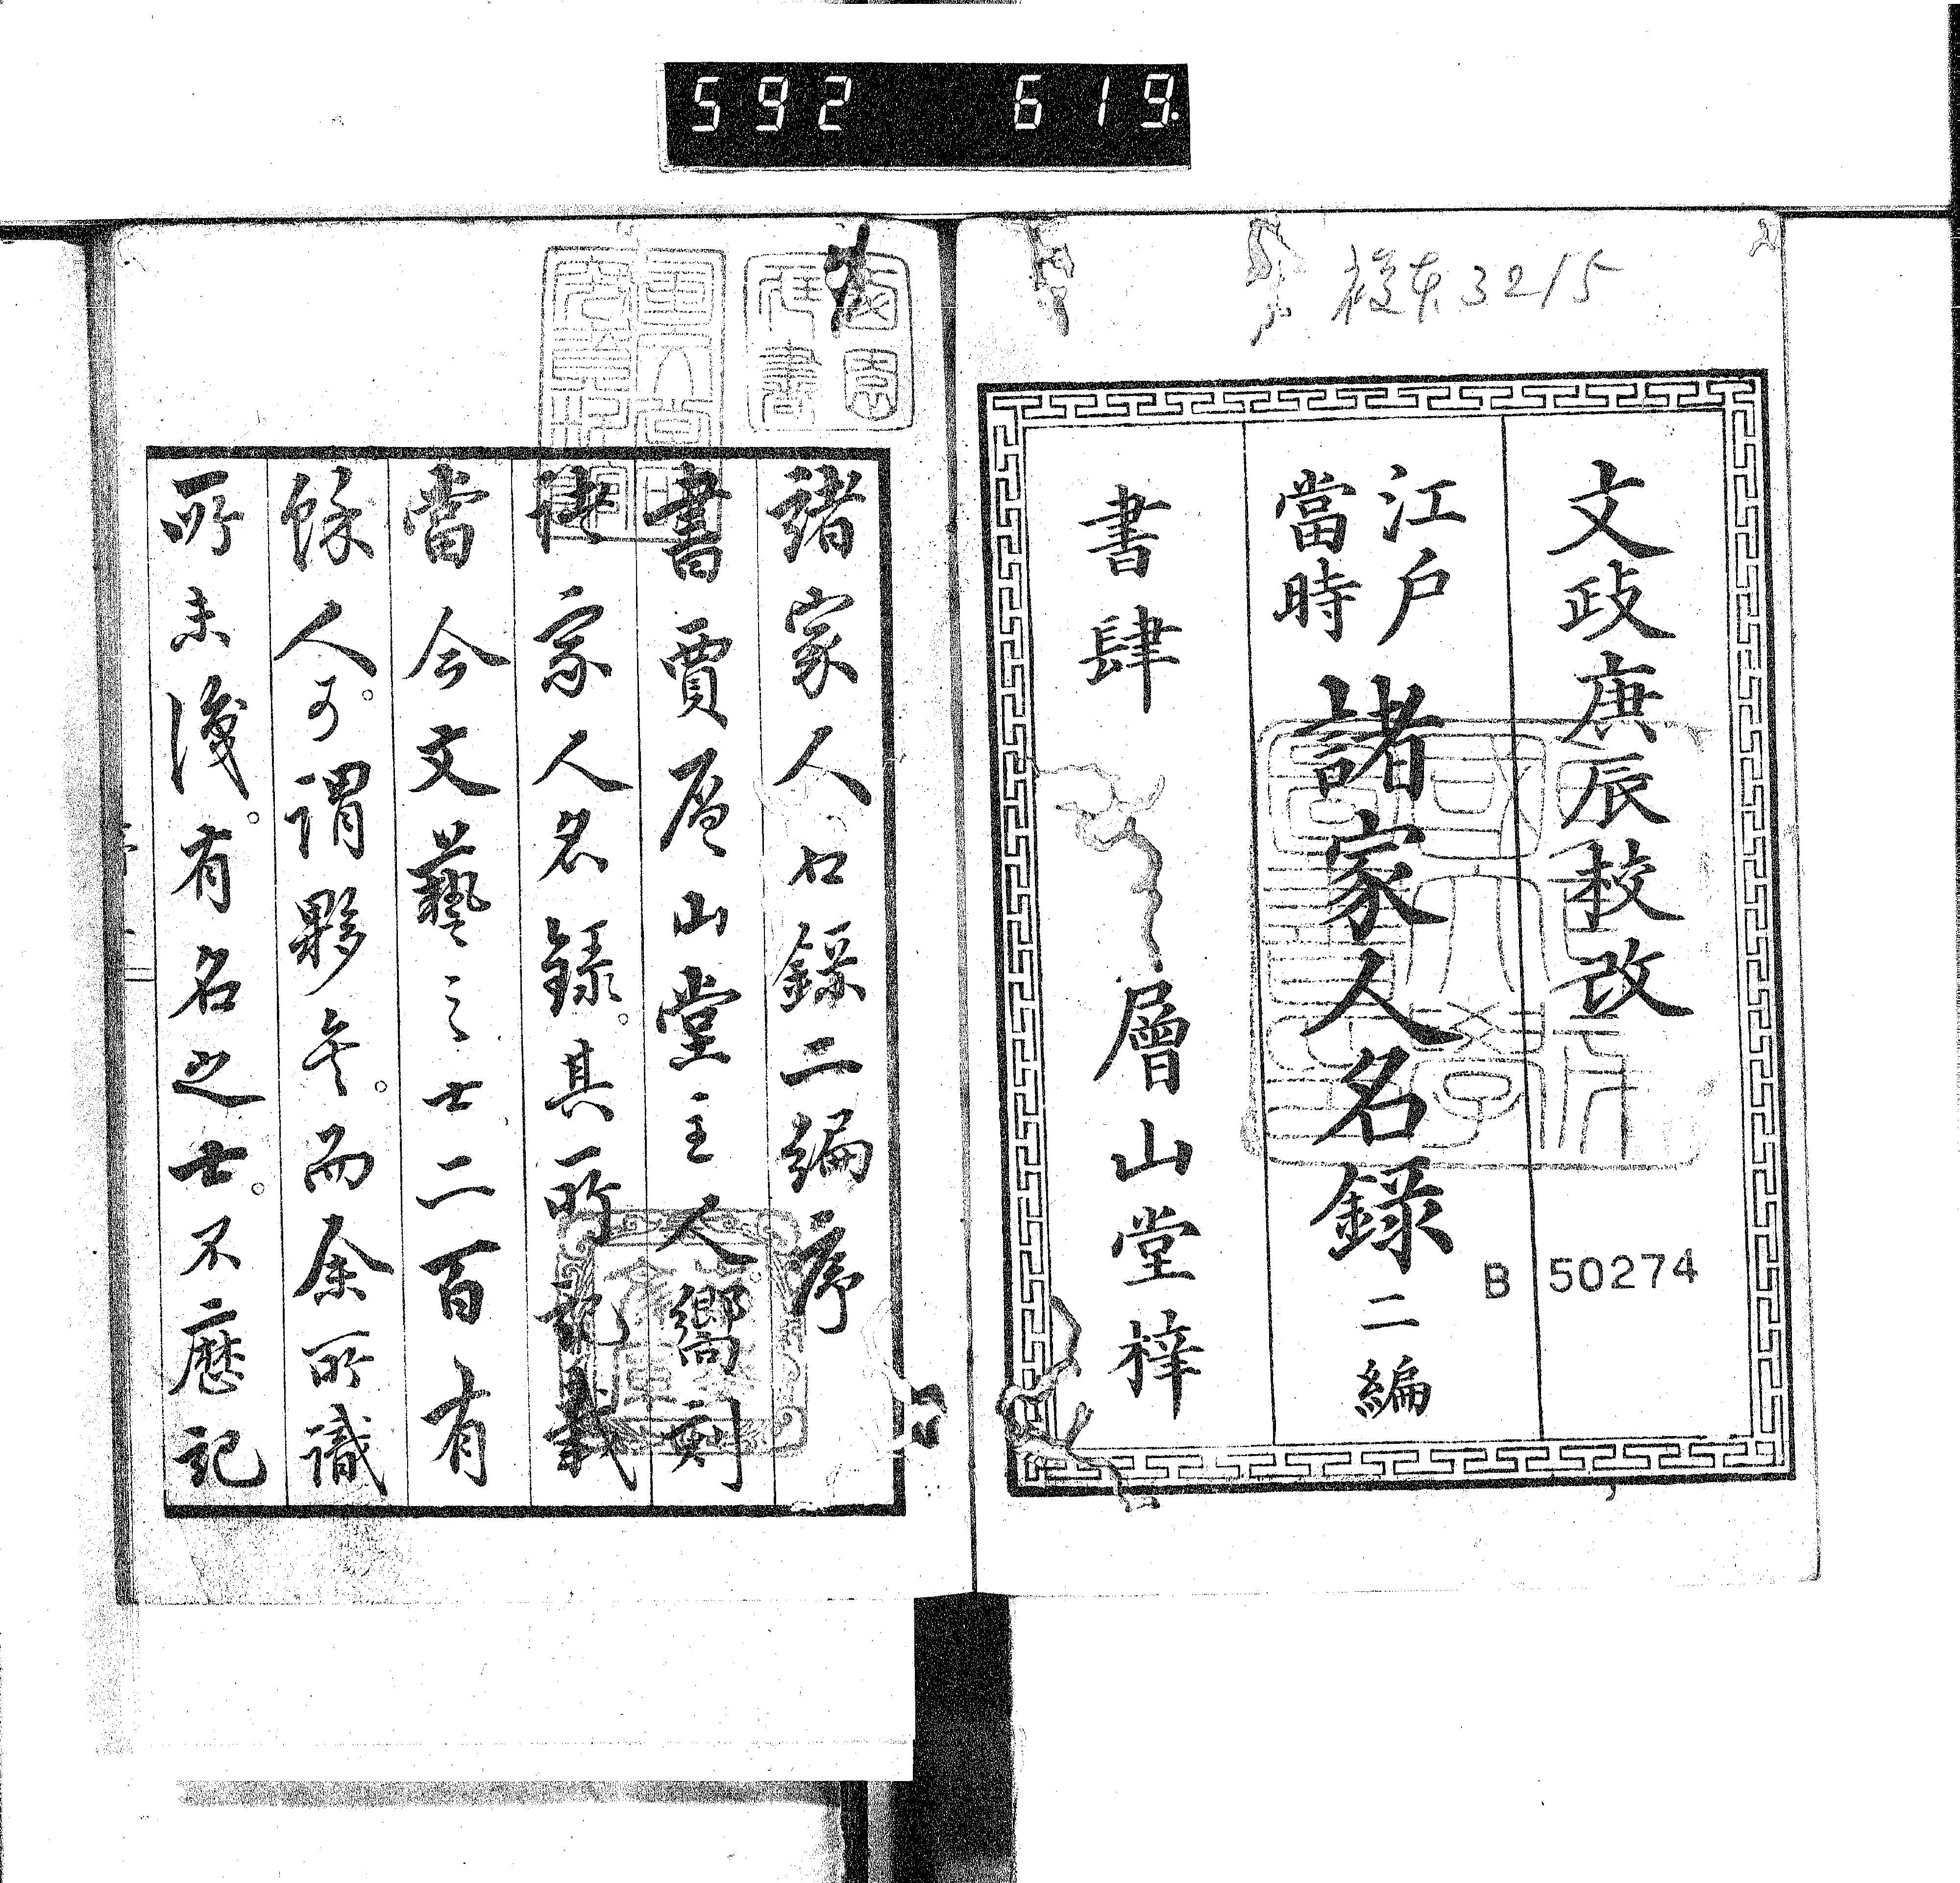 592 619.
文政庚辰校改
江戸
當時
諸家人名録 二編
書肆 層山堂梓
B 50274
3215
諸家人名録二編序
書賈層山堂主人嚮刻
諸家人名録。其所記載
當今文藝之士二百有
餘人。可謂夥矣。而余所識
所未識。有名之士。不應記